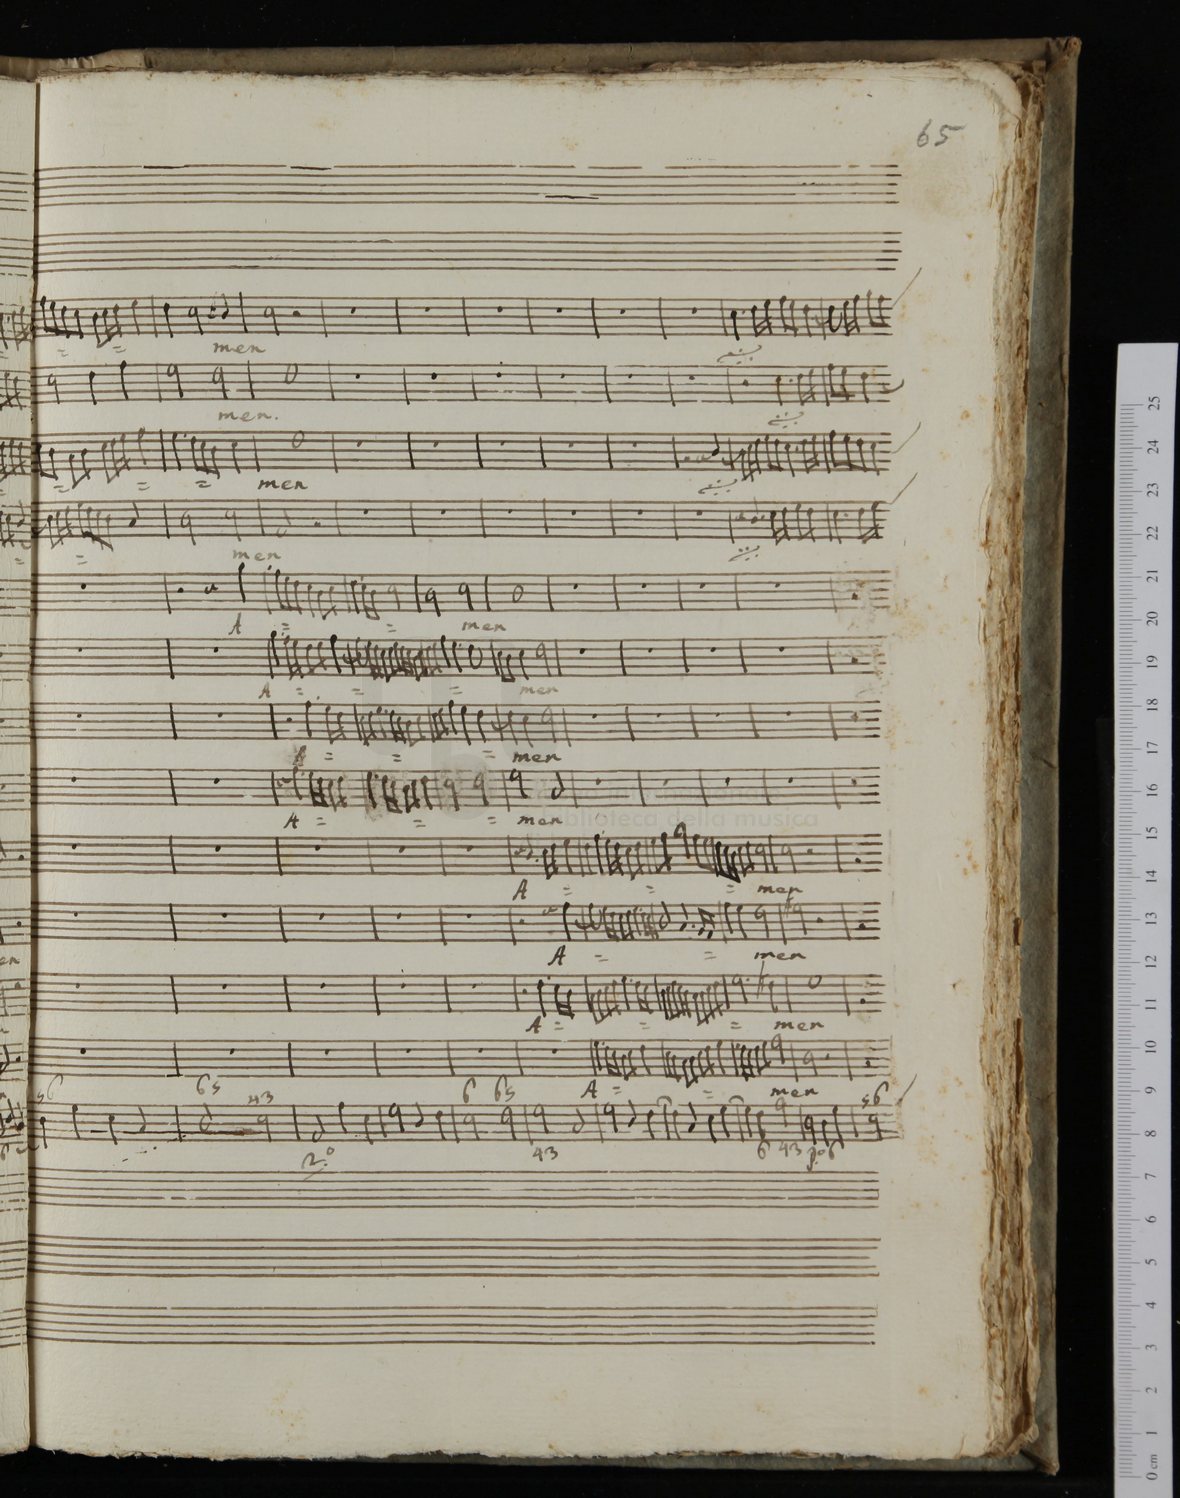 65
= = men
men.
= = = men
= men
A = = men
A = = = men
A = = = men
A = = = men
A = = = men
A = = men
A = = = men
A = = men
56 65 43 6 65 56
2.º 43 6 43 p.º 6
biblioteca della musica
25
24
23
22
21
20
19
18
17
16
15
14
13
12
11
10
9
8
7
6
5
4
3
2
1
0 cm